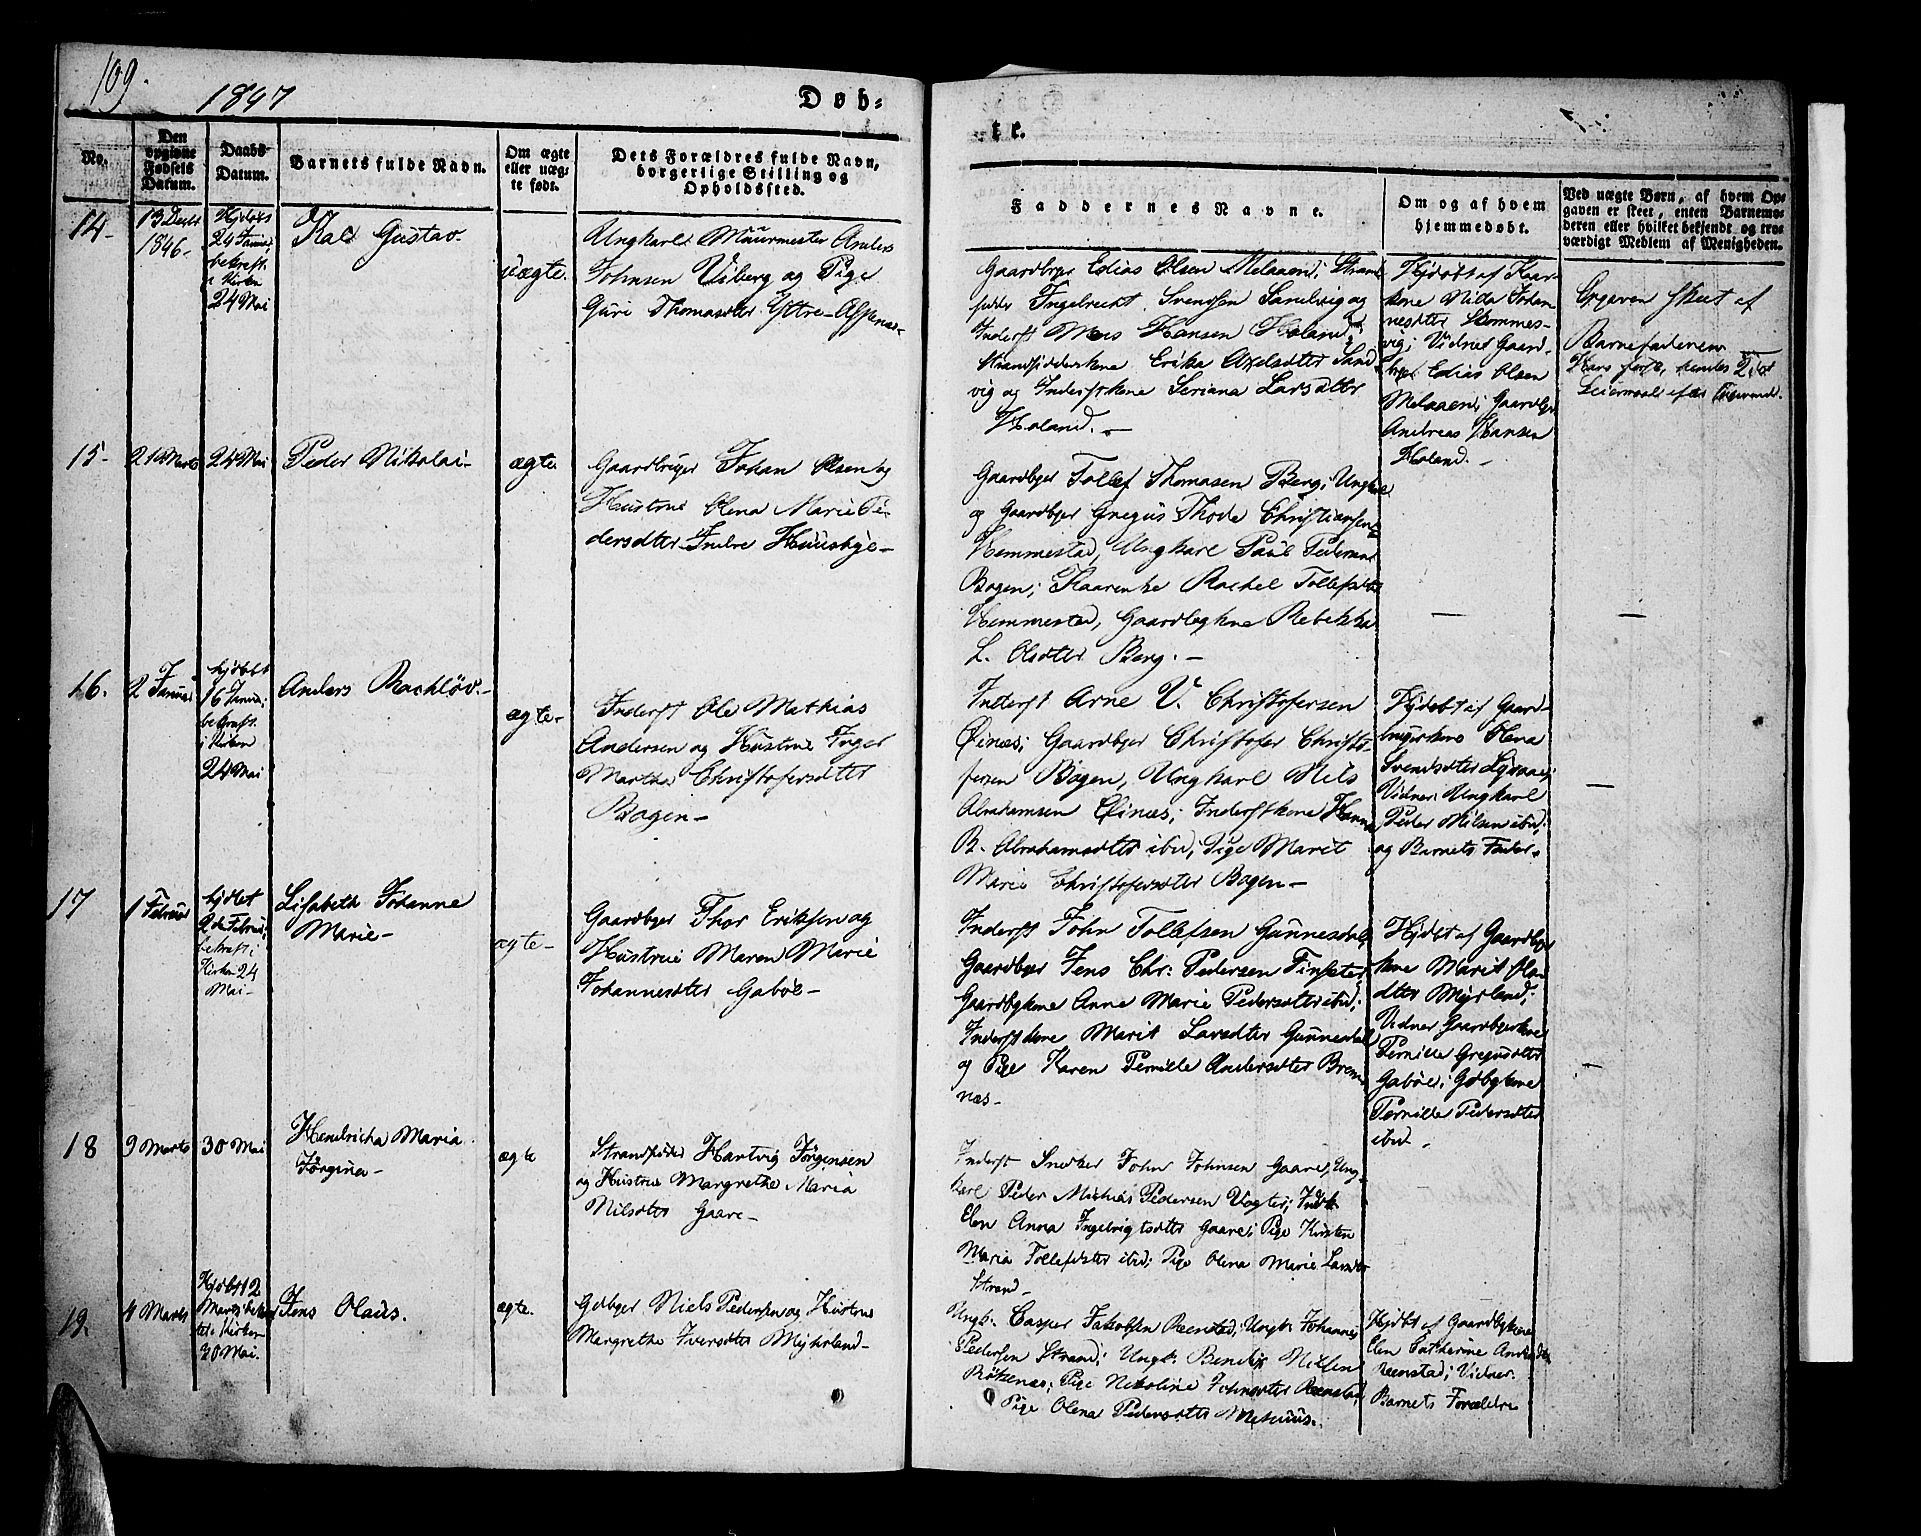 109.
1847
Døb-
te.
No.
Den opgivne Fødsels Datum.
Daabs Datum.
Barnets fulde Navn.
Om ægte eller uægte født.
Dets Forældres fulde Navn, borgerlige Stilling og Opholdssted.
Faddernes Navne.
Om og af hvem hjemmedøbt.
Ved uægte Børn, af hvem Opgaven er skeet, enten Barnemoderen eller hvilket bekjendt og troværdigt Medlem af Menigheden.
14-
13 Decbr
1846-
Hjdøbt
24 Januar,
bekræft.
i Kirken
24 Mai
Gustav-
uægte.
Ungkarl Muurmester Anders
Johnsen Viberg og Pige
Guri Thomasdtter Yttre-
Gaardbrgr Edias Olsen Melaaen; Strand-
sidder Ingebrecht Svendsen Sandvig og
Inderst Mons Hansen Holand;
Strandsidderskene Erika Axelsdtter Sand-
vig og Inderstkene Seriana Larsdtter
Holand.-
Hjdøbt af
Johan-
nesdtter
vig; Vidner Gaard-
Edias Olsen
Melaaen; Gaardbgr
Andreas Hansen
Holand.-
Opgaven skeet af
Barnefaderen
Hans første, hendes 2det
Leiermaal efter
15-
21 Marts
24 Mai
Peder Nikolai-
ægte.
Gaardbruger Johan Olsen og
Hustrue Olena Marie Pe-
dersdtter Indre Huusbye-
Gaardbgr Tollef Thomasen Berg; Ungkarl
og Gaardbgr Gregus Thode Christiansen
Hemmestad, Ungkarl Paul Pedersen
Bogen; Rachel Tollefsdtter
Hemmestad, Gaardbgkne Rebekka
L. Olsdtter Berg.-
—
—
16.
2 Januar
hjdøbt
16 Januar,
bekræft.
i Kirken
24 Mai
Anders
ægte-
Inderst Ole Mathias
Andersen og Hustrue Inger
Martha Christofersdtter
Bogen-
Inderst Arne V. Christofersen
Øinæs; Gaardbgr Christofer Christo-
fersen Bogen, Ungkarl Nils
Abrahamsen Øinæs; Inderstkone Hanna
B. Abrahamsdtter ibid, Pige Marit
Marie Christofersdtter Bogen-
Hjdøbt af Gaard-
Olena
Svendsdtter
Vidner Ungkarl
Peder Nilsen ibid;
og Barnets Fader.
—
17
1 Februar
hjdøbt
2de Februar,
bekræft. i
Kirken 24
Mai-
Lisabeth Johanne
Marie-
ægte-
Gaardbgr Thor Eriksen og
Hustrue Maren Marie
Johannesdtter Gabøe-
Inderst John Tollefsen Gunnesdal,
Gaardbgr Jens Chr: Pedersen Finsæter,
Gaardbgkne Anne Marie Pedersdtter ibid;
Marit Larsdtter Gunnesdal
og Pige Karen Pernille Andersdtter Brem-
næs-
Hjdøbt af Gaardbgr
kene Marit Ola-
dtter Myrland;
Vidner Gaardbgrkene
Pernille Gregusdtter
Gabøe; Gdbgkne
Pernille Pedersdtter
ibid-
18
9 Marts
30 Mai
Hendricka Maria
Jørgina-
ægte
Strandsidder Hartvig Jørgensen
og Hustrue Margrethe Maria
Nilsdtter Gaare-
Inderst Snedker John Johnsen Gaare, Ung-
karl Peder Mathias Pedersen Vogter;
Elen Anna Ingebrigtsdtter Gaare; Pige Kirsten
Maria Tollefsdtter ibid; Pige Olena Marie Larsdtter
Strand-
19.
4 Marts
Hjdøbt 12
Marts, bekræf-
tet i Kirken
30 Mai.
Jens Olaus.
ægte.
Gdbgr Niels Pedersen og Hustrue
Margrethe Iversdtter Myhrland-
Ungk. Casper Jakobsen Reenstad; Ungk. Johannes
Pedersen Strand; Ungk. Bendix Nielsen
Pige Nikoline Johnsdtter Reenstad;
Pige Olena Pedersdtter
Hjdøbt af Gaardbgkene
Elen Cathrine
Reenstad; Vidner
Barnets Forældre